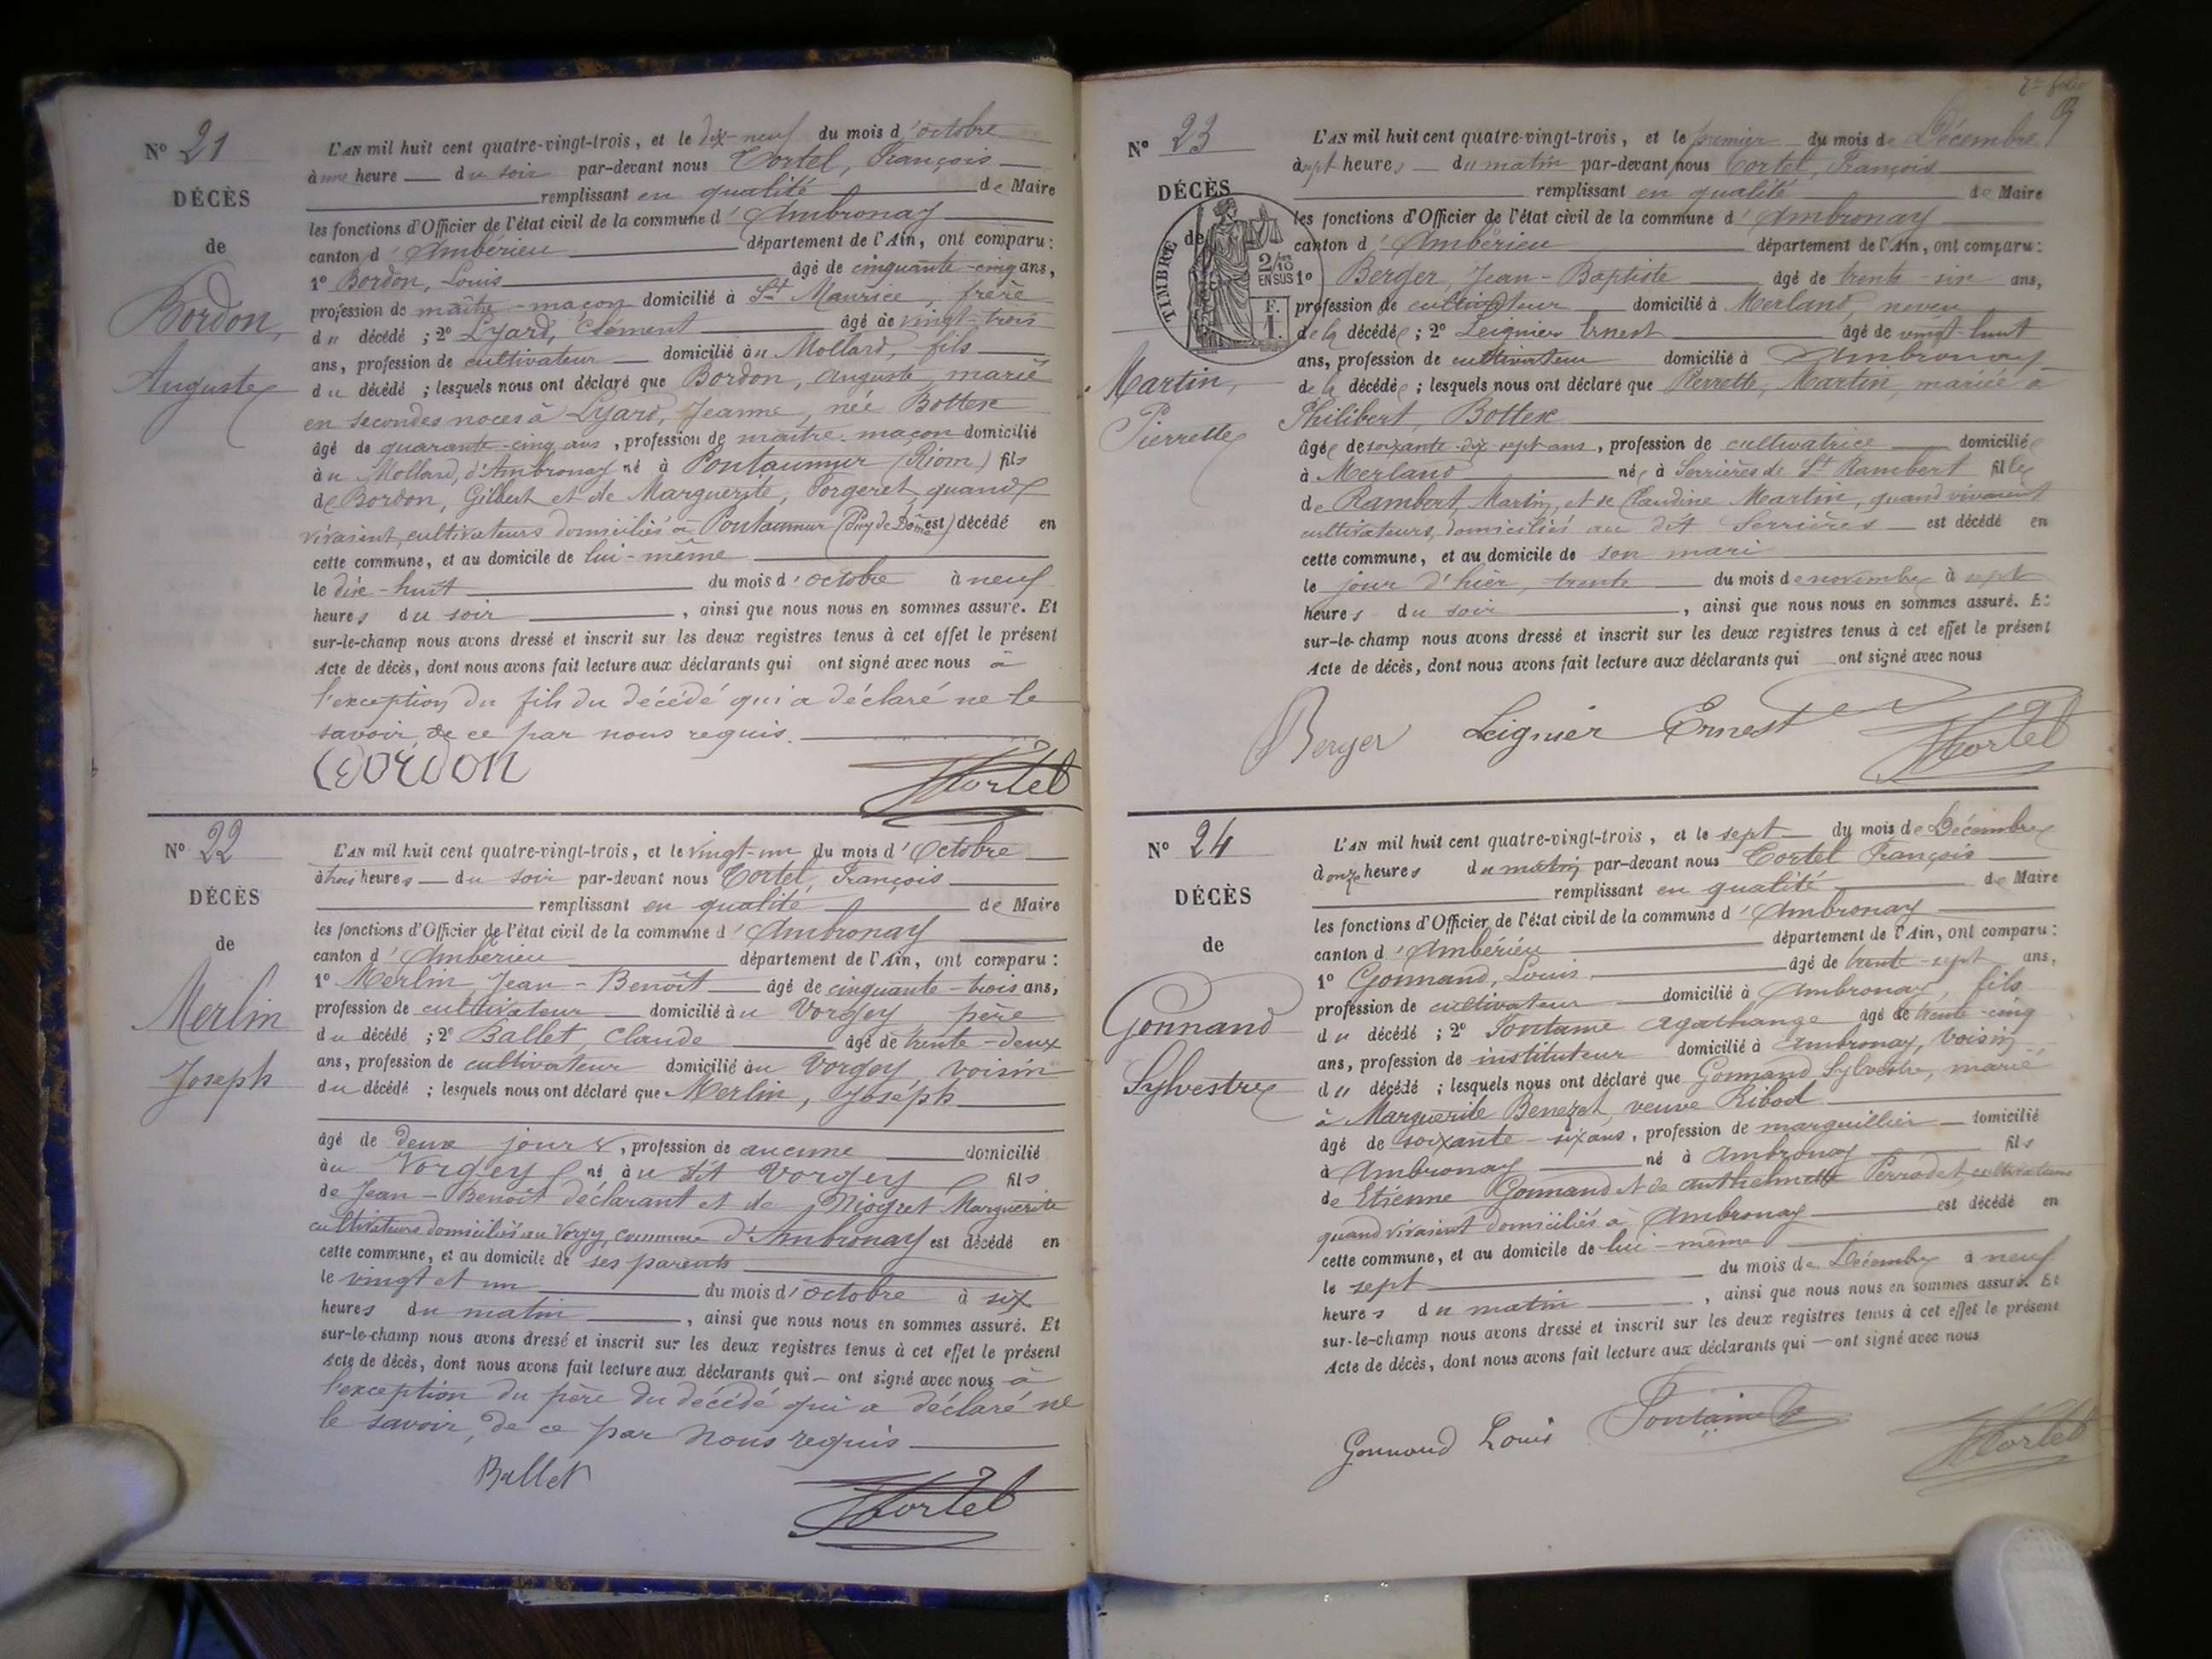 Nº 21
DÉCÈS
de
Bordon,
Auguste
L'AN mil huit cent quatre-vingt-trois, et le dix-neuf du mois d'octobre
à une heure du soir par-devant nous Tortel, François
remplissant en qualité de Maire
les fonctions d'Officier de l'état civil de la commune d'Ambronay
canton d'Ambérieu département de l'Ain, ont comparu :
1º Bordon, Louis âgé de cinquante-cinq ans,
profession de maître-maçon domicilié à St Maurice, frère
du décédé ; 2º Lyard, Clément âgé de vingt-trois
ans, profession de cultivateur domicilié au Mollard, fils
du décédé ; lesquels nous ont déclaré que Bordon, Auguste, marié
en secondes noces à Lyard, Jeanne, née Bottex
âgé de quarante-cinq ans, profession de maître-maçon domicilié
au Mollard, d'Ambronay né à Pontaumur (Riom) fils
de Bordon, Gilbert et de Marguerite, Forgeret, quand
vivaient, cultivateurs domiciliés à Pontaumur (Puy de Dôme) est décédé en
cette commune, et au domicile de lui-même
le dix-huit du mois d'octobre à neuf
heures du soir, ainsi que nous nous en sommes assuré. Et
sur-le-champ nous avons dressé et inscrit sur les deux registres tenus à cet effet le présent
Acte de décès, dont nous avons fait lecture aux déclarants qui ont signé avec nous à
l'exception du fils du décédé qui a déclaré ne le
savoir de ce par nous requis.
Bordon
Tortel
Nº 22
DÉCÈS
de
Merlin
Joseph
L'AN mil huit cent quatre-vingt-trois, et le vingt-un du mois d'Octobre
à trois heures du soir par-devant nous Tortel, François
remplissant en qualité de Maire
les fonctions d'Officier de l'état civil de la commune d'Ambronay
canton d'Ambérieu département de l'Ain, ont comparu :
1º Merlin, Jean-Benoît âgé de cinquante-trois ans,
profession de cultivateur domicilié au Vorgey père
du décédé ; 2º Ballet, Claude âgé de trente-deux
ans, profession de cultivateur domicilié au Vorgey, voisin
du décédé ; lesquels nous ont déclaré que Merlin, Joseph
âgé de deux jours, profession de aucune domicilié
au Vorgey né au dit Vorgey fils
de Jean-Benoît déclarant et de Nioguet Marguerite
cultivateurs domiciliés au Vorgey, commune d'Ambronay est décédé en
cette commune, et au domicile de ses parents
le vingt et un du mois d'octobre à six
heures du matin, ainsi que nous nous en sommes assuré. Et
sur-le-champ nous avons dressé et inscrit sur les deux registres tenus à cet effet le présent
Acte de décès, dont nous avons fait lecture aux déclarants qui ont signé avec nous à
l'exception du père du décédé qui a déclaré ne
le savoir, de ce par nous requis
Ballet
Tortel
7e folio
Nº 23
DÉCÈS
de
TIMBRE
2/10 EN SUS
F. 1
Martin,
Pierrette
L'AN mil huit cent quatre-vingt-trois, et le premier du mois de Décembre
à sept heures du matin par-devant nous Tortel, François
remplissant en qualité de Maire
les fonctions d'Officier de l'état civil de la commune d'Ambronay
canton d'Ambérieu département de l'Ain, ont comparu :
1º Berger, Jean-Baptiste âgé de trente-six ans,
profession de cultivateur domicilié à Merland, neveu
de la décédée ; 2º Leignier Ernest âgé de vingt-huit
ans, profession de cultivateur domicilié à Ambronay
de la décédée ; lesquels nous ont déclaré que Pierrette, Martin, mariée à
Philibert, Bottex
âgée de soixante-dix-sept ans, profession de cultivatrice domiciliée
à Merland née à Serrières de St Rambert fille
de Rambert, Martin, et de Claudine Martin, quand vivaient
cultivateurs, domiciliés au dit Serrières est décédé en
cette commune, et au domicile de son mari
le jour d'hier, trente du mois de novembre à sept
heures du soir, ainsi que nous nous en sommes assuré. Et
sur-le-champ nous avons dressé et inscrit sur les deux registres tenus à cet effet le présent
Acte de décès, dont nous avons fait lecture aux déclarants qui ont signé avec nous
Berger Leignier Ernest
Tortel
Nº 24
DÉCÈS
de
Gonnand
Sylvestre
L'AN mil huit cent quatre-vingt-trois, et le sept du mois de Décembre
à onze heures du matin par-devant nous Tortel François
remplissant en qualité de Maire
les fonctions d'Officier de l'état civil de la commune d'Ambronay
canton d'Ambérieu département de l'Ain, ont comparu :
1º Gonnand, Louis âgé de trente-sept ans,
profession de cultivateur domicilié à Ambronay, fils
du décédé ; 2º Fontaine Agathange âgé de trente-cinq
ans, profession de instituteur domicilié à Ambronay, voisin
du décédé ; lesquels nous ont déclaré que Gonnand Sylvestre, marié
à Marguerite Benezet, veuve Ribod
âgé de soixante-six ans, profession de marguillier domicilié
à Ambronay né à Ambronay fils
de Etienne Gonnand et de Anthelmette Perrodet, cultivateurs
quand vivaient domiciliés à Ambronay est décédé en
cette commune, et au domicile de lui-même
le sept du mois de Décembre à neuf
heures du matin, ainsi que nous nous en sommes assuré. Et
sur-le-champ nous avons dressé et inscrit sur les deux registres tenus à cet effet le présent
Acte de décès, dont nous avons fait lecture aux déclarants qui ont signé avec nous
Gonnand Louis Fontaine
Tortel